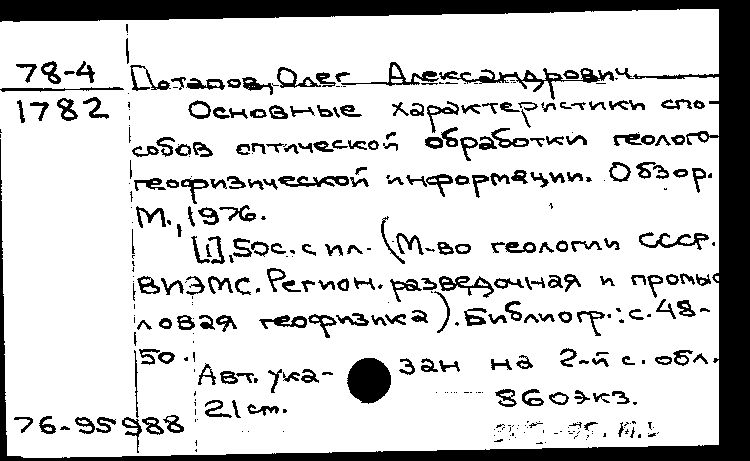 78-4 Потапов, Олег Александрович
1782 Основные характеристики спо-
собов оптической обработки геолого-
геофизической информации. Обзор.
М., 1976.
[1], 50с. с ил. (М-во геологии СССР.
ВИЭМС. Регион. разведочная и промыс
ловая геофизика). Библиогр.: с. 48-
50.
Авт. ука- зан на 2-й с. обл.
21 см. 860экз.
76-95988